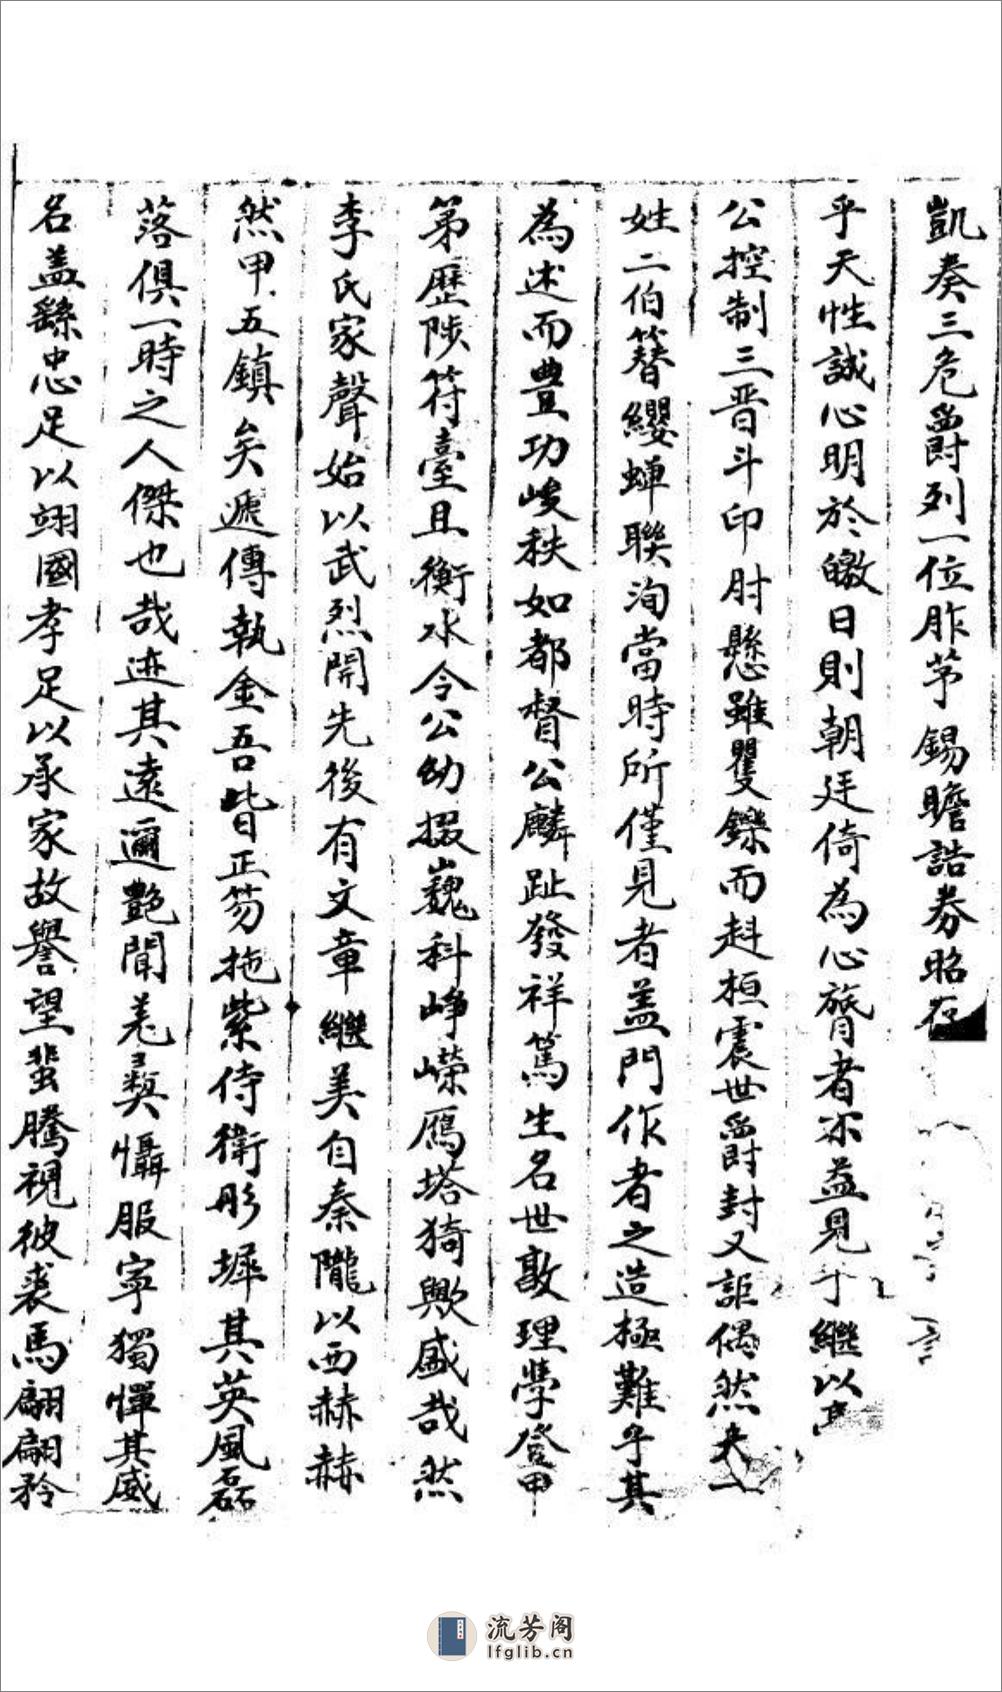 凱奏三危爵列一位胙茅錫瞻誥券昭
乎天性誠心明於皦日則朝廷倚為心膂者亦益見于繼以
公控制三晋斗印肘懸雖矍鑠而赳桓震世爵封又詎偶然夫一
姓二伯簪纓蟬聯洵當時所僅見者盖門作者之造極難乎其
為述而豊功峻秩如都督公麟趾發祥篤生名世敦理學登甲
第歷陟符臺且衡水令公幼掇巍科崢嶸鴈塔猗歟盛哉然
李氏家聲始以武烈開先後有文章繼美自秦隴以西赫赫
然甲五鎮矣遞傳執金吾皆正笏拖紫侍衛彤墀其英風磊
落俱一時之人傑也哉迹其遠邇艷聞羌彛懾服寧獨憚其威
名盖繇忠足以翊國孝足以承家故譽望蜚騰視彼裘馬翩翩矜
流芳阁
lfglib.cn